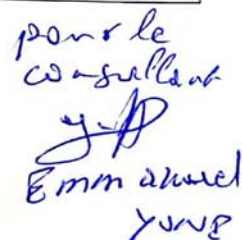 pour le
consultant
Emmanuel